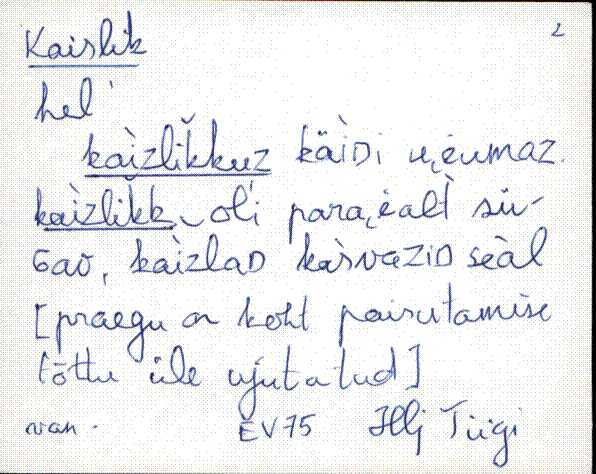 2
Kaislik
hel'
kaìzlĭkkuz käìDi ujumaz.
kaìzlĭkk oĺi parajalt sü-
Gaǜ, kaìzlaD kàsvaziD seàl
[praegu on koht paisutamise
tõttu üle ujutatud]
van. EV75 Hlj Tiigi